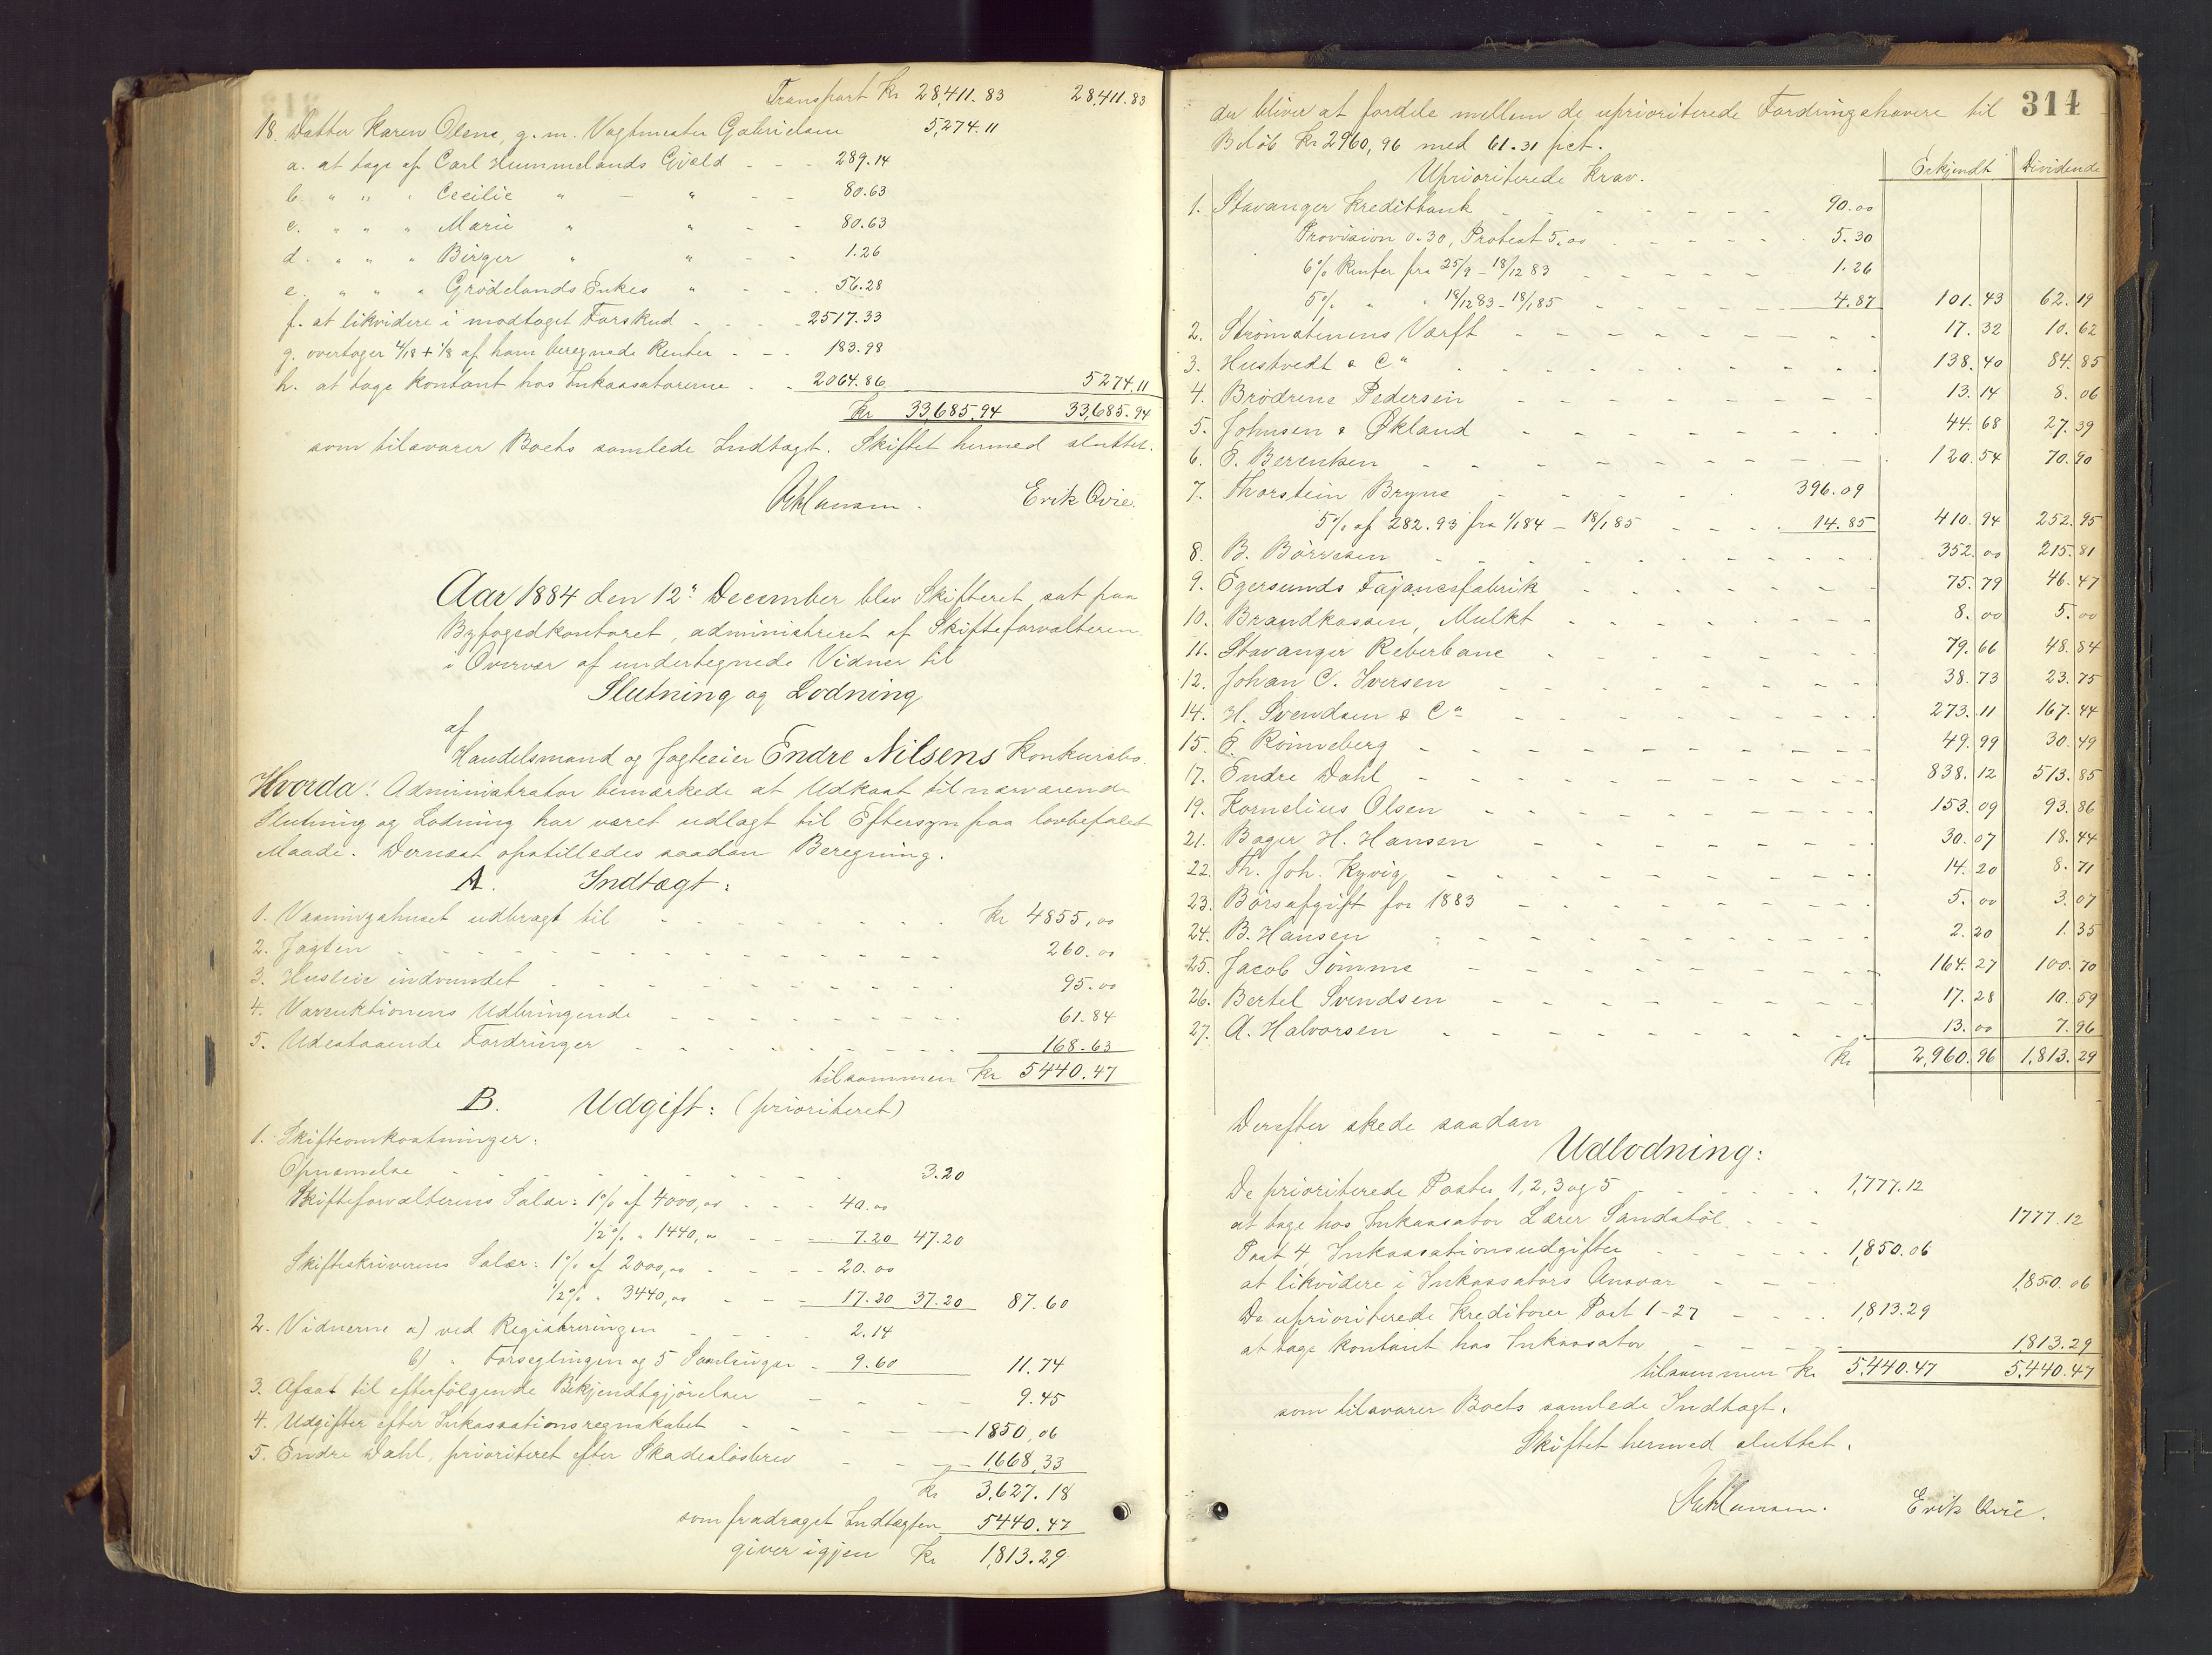 Transport Kr 28,411.83 28,411.83
18. Datter Karen Olene, g. m. Vagtmester Gabrielsen 5,274.11
a. at tage af Carl Hummelands Gjæld - - - 289.14
b. " " " Cecilie " - " - - 80.63
c. " " " Marie " " - - 80.63
d. " " " Birger " " - - 1.26
e. " " " Grødelands Enkes " - - 56.28
f. at likvidere i modtaget Forskud - - - - 2517.33
g. overtager 4/18 + 1/8 af ham beregnede Renter - - - 183.98
h. at tage kontant hos Inkassatorerne - - 2064.86 5274.11
Kr 33,685.94 33,685.94
som tilsvarer Boets samlede Indtægt. Skiftet hermed sluttet.
Erik Qvie.
Aar 1884 den 12te December blev Skifteret sat paa
Byfogedkontoret, administreret af Skifteforvalteren
i Overvær af undertegnede Vidner til
Slutning og Lodning
af
Handelsmand og Jagteier Endre Nilsens Konkursbo.
Hvorda: Administrator bemærkede at Udkast til nærværende
Slutning og Lodning har været udlagt til Eftersyn paa lovbefalet
Maade. Dernæst opstilledes saadan Beregning.
A. Indtægt:
1. Vaaningshuset udbragt til - - - - - - Kr 4855,00
2. Jagten - - - - - - - - - - 260.00
3. Husleie indvundet - - - - - - - - 95.00
4. Vareauktionens Udbringende - - - - - - - - 61.84
5. Udestaaende Fordringer - - - - - - - 168.63
tilsammen Kr 5440.47
B. Udgift: (prioriteret)
1. Skifteomkostninger:
Opnævnelse - - - - - - - - 3.20
Skifteforvalterens Salær: 1% af 4000,00 - - - 40.00
1/2% " 1440,00 - - - 7.20 47.20
Skifteskriverens Salær: 1% af 2000,00 - - - - 20.00
1/2% " 3440,00 - - - 17.20 37.20 87.60
2. Vidnerne a) ved Registreringen - - - - 2.14
b) " Forseglingen og 5 Samlinger - 9.60 11.74
3. Afsat til efterfølgende Bekjendtgjørelser - - - - - 9.45
4. Udgifter efter Inkassationsregnskabet - - - - - 1850,06
5. Endre Dahl, prioriteret efter Skadesløsbrev - - - 1,668,33
Kr 3,627.18
som fradraget Indtægten 5440.47
giver igjen Kr 1,813.29
314
der bliver at fordele mellem de uprioriterede Fordringshavere til
Beløb Kr 2960,96 med 61.31 pct.
Uprioriterede Krav. Erkjendt Dividende
1. Stavanger Kreditbank - - - - - - - 90.00
Provision 0.30, Protest 5.00 - - - - - 5.30
6% Renter fra 25/9 - 18/12 83 - - - - - 1.26
5% " " 18/12 83 - 18/1 85 - - - - - 4.87 101.43 62.19
2. Strømstenens Værft - - - - - - - - 17.32 10.62
3. Hustvedt & Co - - - - - - - - 138.40 84.85
4. Brødrene Pedersen - - - - - - - 13.14 8.06
5. Johnsen & Økland - - - - - - - 44.68 27.39
6. E. Berentsen - - - - - - - - 120.54 70.90
7. Thorstein Bryne - - - - - 396.09
5% af 282.93 fra 1/1 84 - 18/1 85 - - - - 14.85 410.94 252.95
8. B. Børresen - - - - - - - - 352.00 215.81
9. Egersunds Fajancefabrik - - - - - - 75.79 46.47
10. Brandkassen, Mulkt - - - - - - - 8.00 5.00
11. Stavanger Reberbane - - - - - - - 79.66 48.84
12. Johan C. Iversen - - - - - - - 38.73 23.75
14. H. Svendsen & Co - - - - - - - 273.11 167.44
15. E. Rønneberg - - - - - - - - 49.99 30.49
17. Endre Dahl - - - - - - - - 838.12 513.85
19. Kornelius Olsen - - - - - - - 153.09 93.86
21. Bager H. Hansen - - - - - - 30.07 18.44
22. Th. Joh. Kyvig - - - - - - - - 14.20 8.71
23. Børsafgift for 1883 - - - - - - - 5.00 3.07
24. B. Hansen - - - - - - - - 2.20 1.35
25. Jacob Sømme - - - - - - - - 164.27 100.70
26. Bertel Svendsen - - - - - - - 17.28 10.59
27. A. Halvorsen - - - - - - - - 13.00 7.96
Kr 2,960.96 1,813.29
Derefter skede saadan
Udlodning:
De prioriterede Poster 1, 2, 3 og 5 - - - - - 1,777.12
at tage hos Inkassator Lærer Sandstøl - - - 1777.12
Post 4, Inkassationsudgifter - - - - - 1,850.06
at likvidere i Inkassators Ansvar - - - - 1,850.06
De uprioriterede Kreditorer Post 1-27 - - - - 1,813.29
at tage kontant hos Inkassator - - - - - 1,813.29
tilsammen Kr 5,440.47 5,440.47
som tilsvarer Boets samlede Indtægt.
Skiftet hermed sluttet.
Erik Qvie.